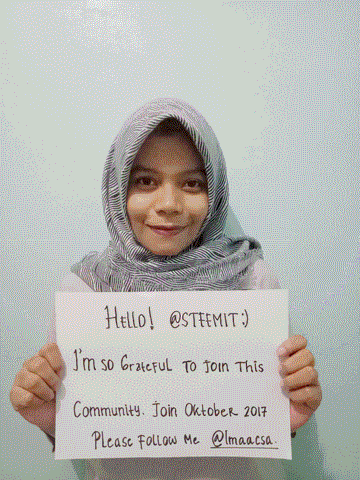 Hello! @STEEMIT :)
I'm so Grateful To Join This
Community. Join Oktober 2017
Please Follow Me @lmaacsa.